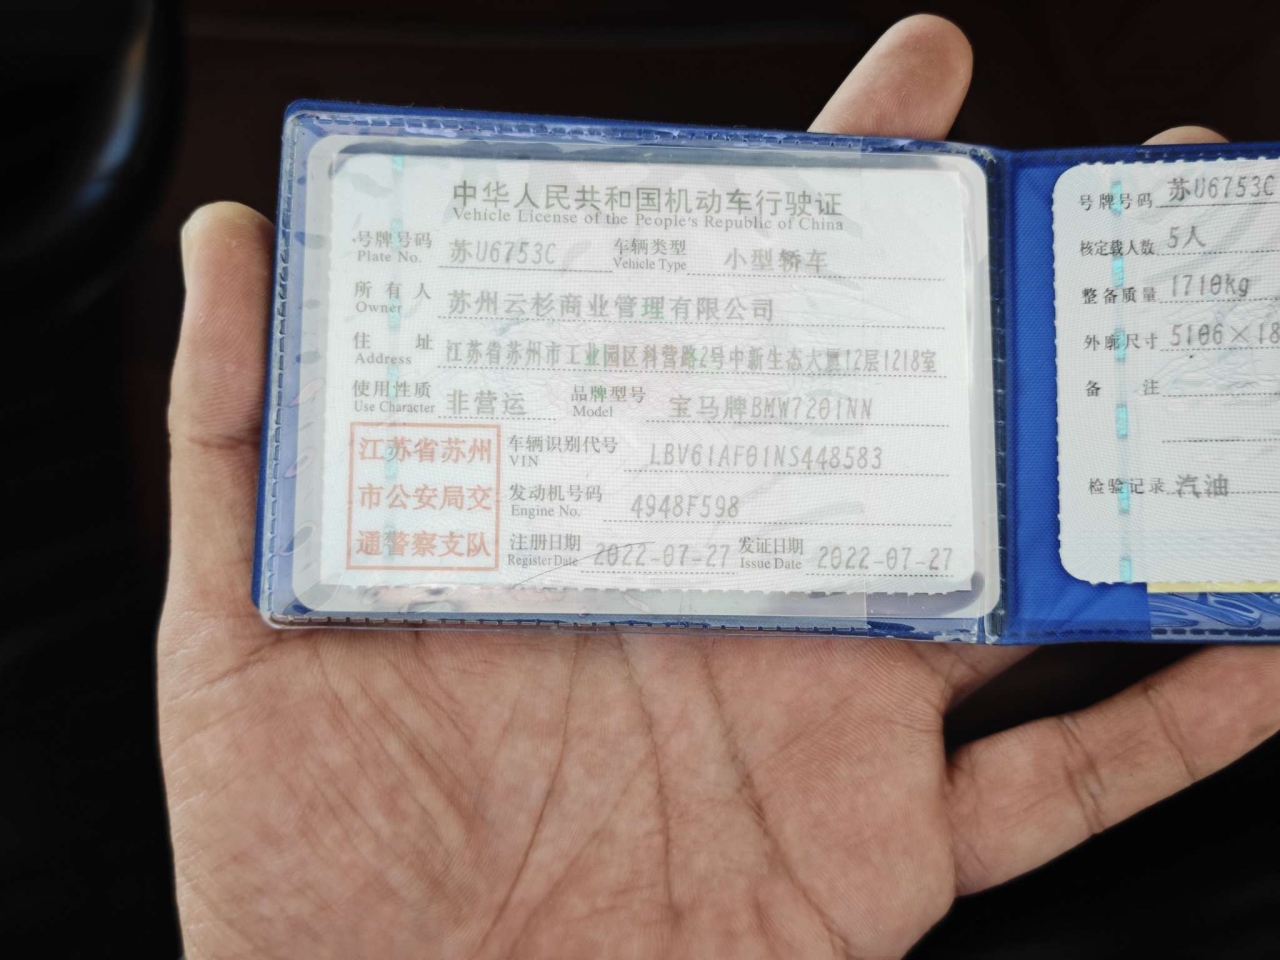 中华人民共和国机动车行驶证
Vehicle License of the People's Republic of China
号牌号码 苏U6753C 车辆类型 小型轿车
Plate No. Vehicle Type
所有人 苏州云杉商业管理有限公司
Owner
住址 江苏省苏州市工业园区科营路2号中新生态大厦12层1218室
Address
使用性质 非营运 品牌型号 宝马牌BMW7201NN
Use Character Model
江苏省苏州
市公安局交
通警察支队
车辆识别代号 LBV61AF01NS448583
VIN
发动机号码 4948F598
Engine No.
注册日期 2022-07-27 发证日期 2022-07-27
Register Date Issue Date
号牌号码 苏U6753C
核定载人数 5人
整备质量 1710kg
外廓尺寸 5106×18
备注
检验记录 汽油